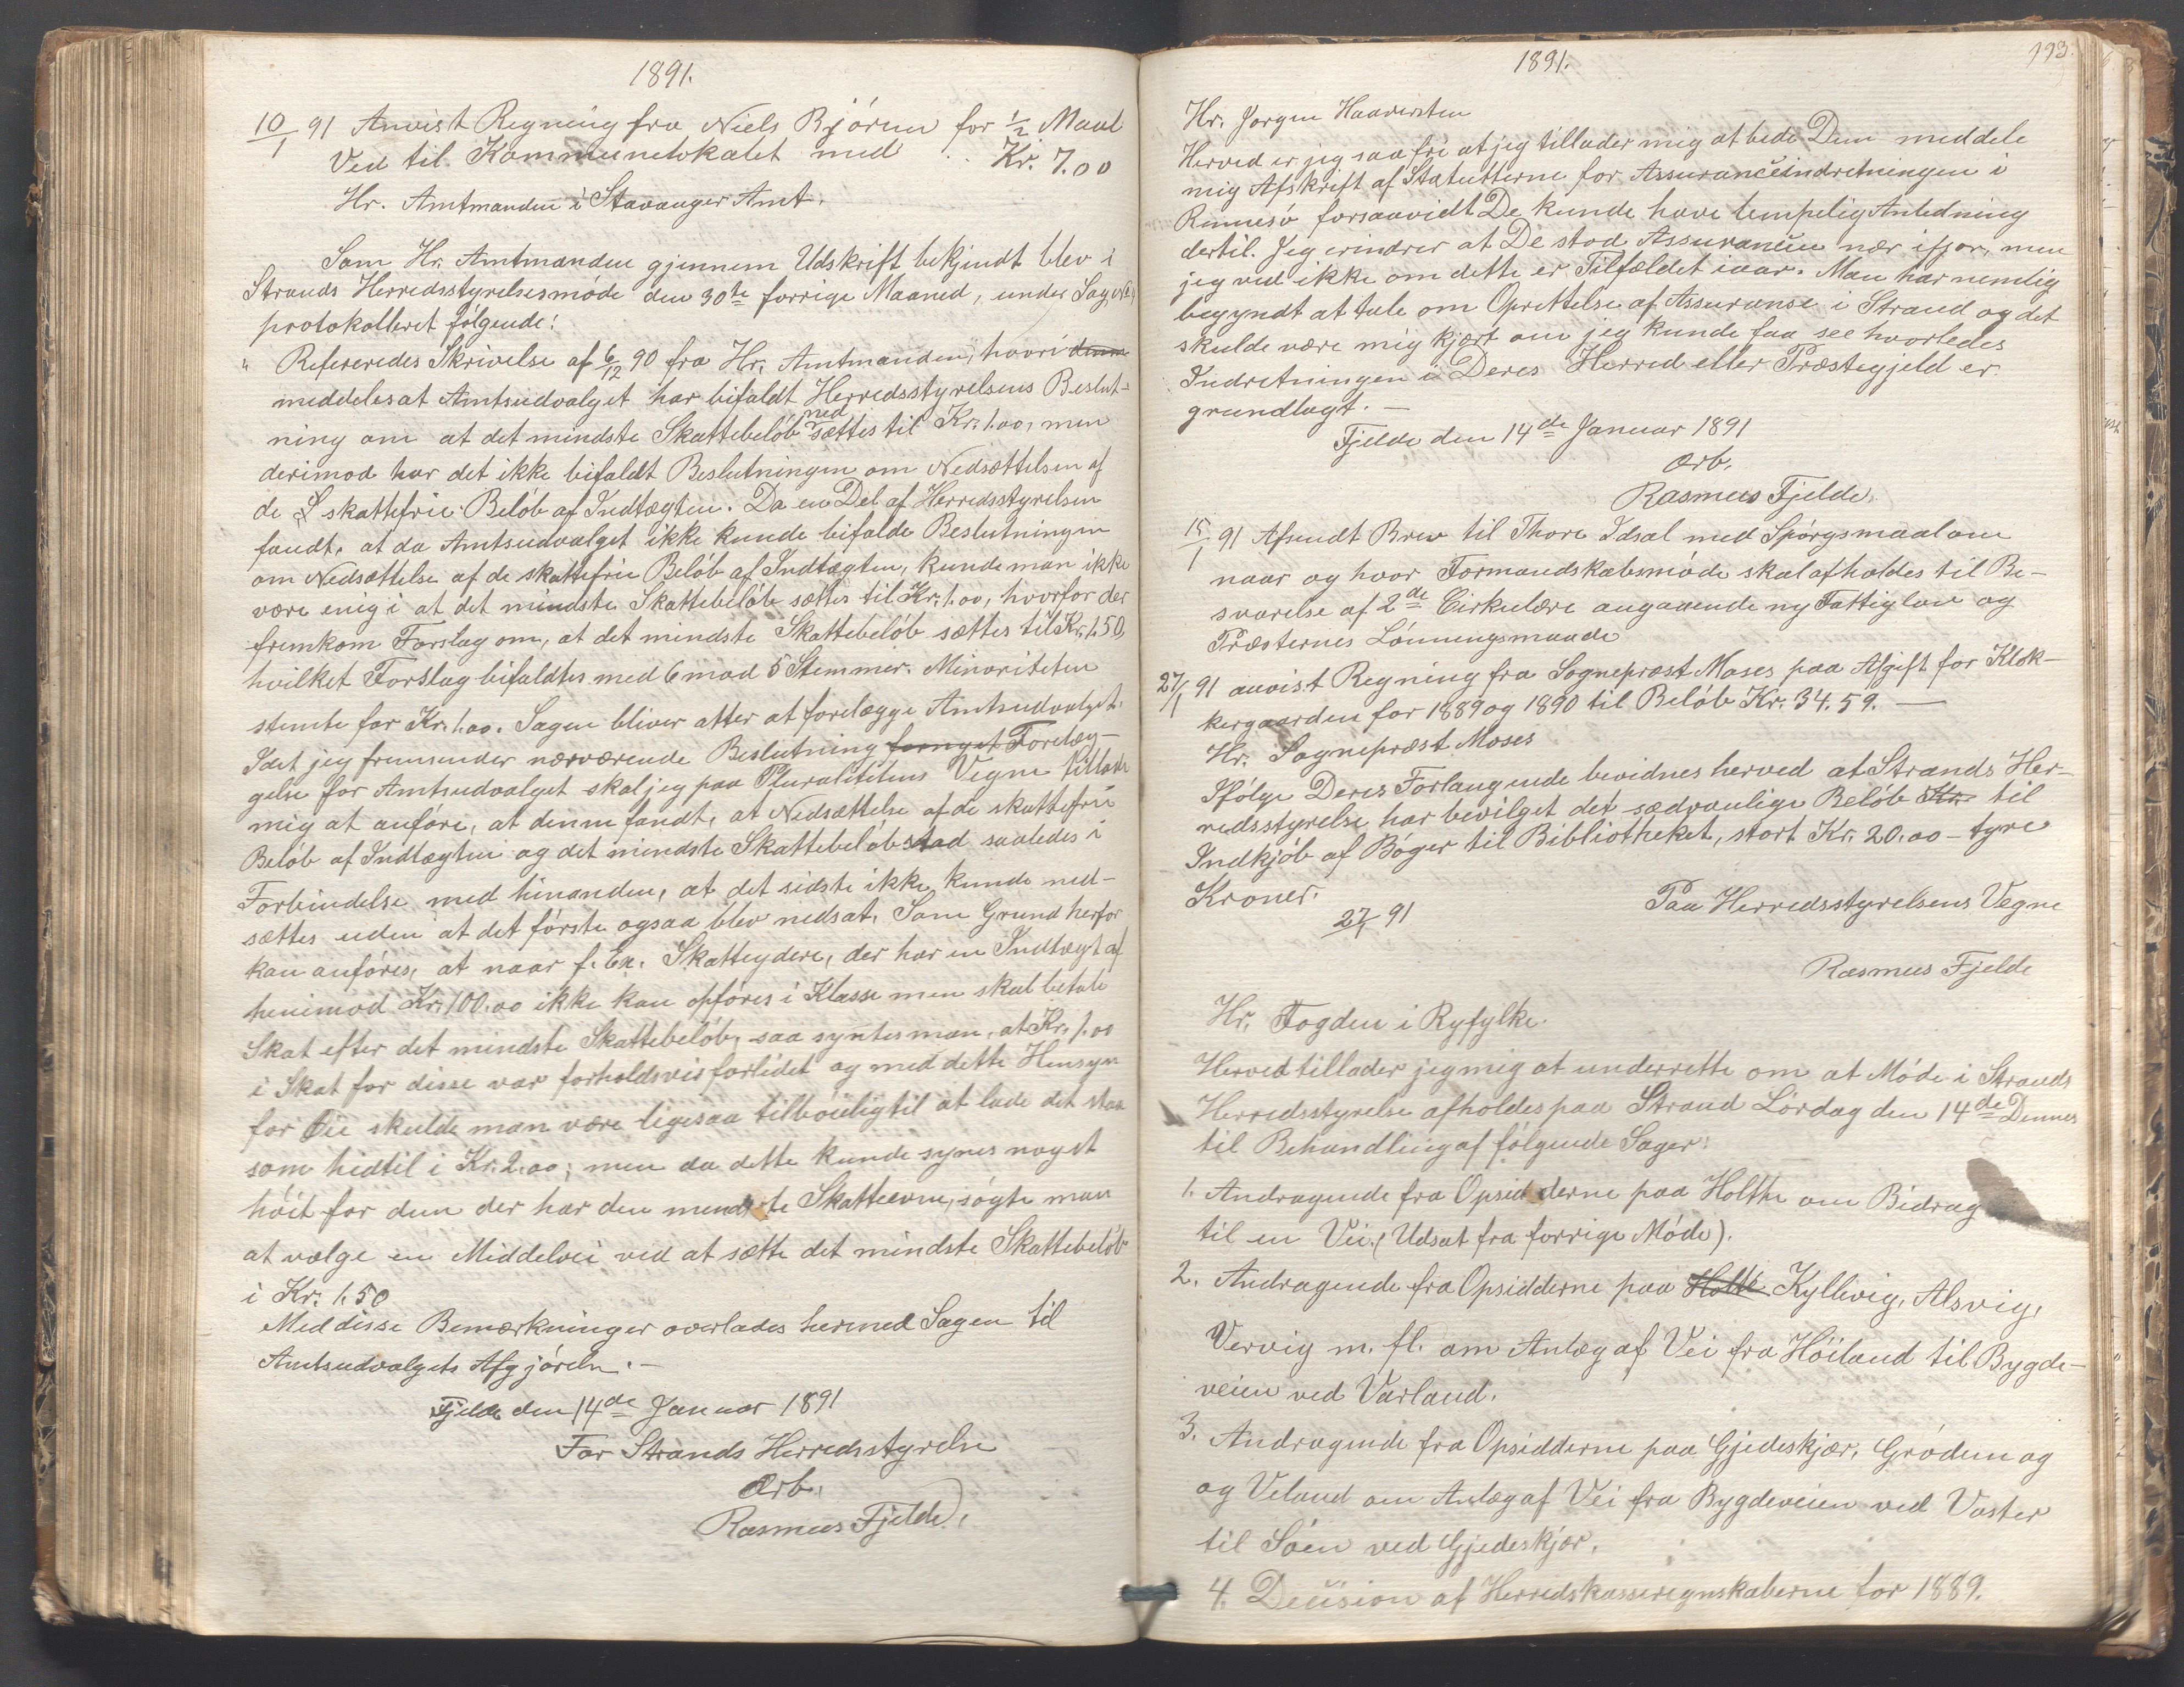 1891.
10/1 91 Anvist Regning fra Niels Bjørnn for 1/2 Maal
Ved til Kommunelokalet med Kr. 7.00
Hr. Amtmanden i Stavanger Amt.
Som Hr. Amtmanden gjennem Udskrift bekjendt blev i
Strands Herredsstyrelsesmøde den 30te forrige Maaned, under Sag No
protokolleret følgende:
" Refereredes Skrivelse af 6/12 90 fra Hr. Amtmanden, hvori denne
meddeles at Amtsudvalget har bifaldt Herredsstyrelsens Beslut-
ning om at det mindste Skattebeløb nedsættes til Kr. 1.00, men
derimod har det ikke bifaldt Beslutningen om Nedsættelsen af
de S skattefrie Beløb af Indtægten. Da en Del af Herredsstyrelsen
fandt, at da Amtsudvalget ikke kunde bifalde Beslutningen
om Nedsættelse af de skattefrie Beløb af Indtægten, kunde man ikke
være enig i at det mindste Skattebeløb sættes til Kr. 1.00, hvorfor der
fremkom Forslag om, at det mindste Skattebeløb sættes til Kr. 1.50,
hvilket Forslag bifaldtes med 6 mod 5 Stemmer. Minoriteten
stemte for Kr. 1.00. Sagen bliver atter at forelægge Amtsudvalget.
Idet jeg fremsender nærværende Beslutning fornyet Forelæg-
gelse for Amtsudvalget skal jeg paa Pluralitetens Vegne tillade
mig at anføre, at denne fandt, at Nedsættelse af de skattefrie
Beløb af Indtægten og det mindste Skattebeløb stod saaledes i
Forbindelse med hinanden, at det sidste ikke kunde ned-
sættes uden at det første ogsaa blev nedsat. Som Grund herfor
kan anføres, at naar f. Ex. Skatteydere, der har en Indtægt af
henimod Kr. 100.00 ikke kan opføres i Klasse men skal betale
Skat efter det mindste Skattebeløb, saa syntes man, at Kr. 1.00
i Skat for disse var forholdsvis forlidet og med dette Hensyn
for Øie skulde man være ligesaa tilbøielig til at lade det staa
som hidtil i Kr. 2.00; men da dette kunde synes noget
høit for dem der har den mindste Skatteevne, søgte man
at vælge en Middelvei ved at sætte det mindste Skattebeløb
i Kr. 1.50
Med disse Bemærkninger overlades hermed Sagen til
Amtsudvalgets Afgjørelse.—
Fjelde den 14de Januar 1891
For Strands Herredsstyrelse
Ærb.
Rasmus Fjelde.
1891.
193.
Hr. Jørgen Haaversten
Herved er jeg saa fri at jeg tillader mig at bede Dem meddele
mig Afskrift af Statutterne for Assuranceindretningen i
Rennesø forsaavidt De kunde have lempelig Anledning
dertil. Jeg erindrer at De stod Assurancen nær ifjor, men
jeg ved ikke om dette er Tilfældet iaar. Man har nemlig
begyndt at tale om Oprettelse af Assuranse i Strand og det
skulde være mig kjært om jeg kunde faa see hvorledes
Indretningen i Deres Herred eller Præstegjeld er
grundlagt. —
Fjelde den 14de Januar 1891
Ærb.
Rasmus Fjelde.
15/1 91 Afsendt Brev til Thore Idsal med Spørgsmaal om
naar og hvor Formandskabsmøde skal afholdes til Be-
svarelse af 2de Cirkulære angaaende ny Fattiglov og
Præsternes Lønningsmaade
27/1 91 anvist Regning fra Sognepræst Moses paa Afgift for Klok-
kergaarden for 1889 og 1890 til Beløb Kr. 34.59. —
Hr. Sognepræst Moses
Ifølge Deres Forlangende bevidnes herved at Strands Her-
redsstyrelse har bevilget det sædvanlige Beløb Kr. til
Indkjøb af Bøger til Bibliotheket, stort Kr. 20.00 - tyve
Kroner.
27/1 91
Paa Herredsstyrelsens Vegne
Rasmus Fjelde
Hr. Fogden i Ryfylke.
Herved tillader jeg mig at underrette om at Møde i Strands
Herredsstyrelse afholdes paa Strand Lørdag den 14de Dennes
til Behandling af følgende Sager:
1. Andragende fra Opsidderne paa Holthe om Bidrag
til en Vei. (Udsat fra forrige Møde).
2. Andragende fra Opsidderne paa Holthe Kyllevig, Alsvig,
Vervig m. fl. om Anlæg af Vei fra Høiland til Bygde-
veien ved Varland.
3. Andragende fra Opsidderne paa Gjedeskjær, Grødem og
og Veland om Anlæg af Vei fra Bygdeveien ved Vaster
til Søen ved Gjedeskjær.
4. Decision af Herredskasseregnskaberne for 1889.